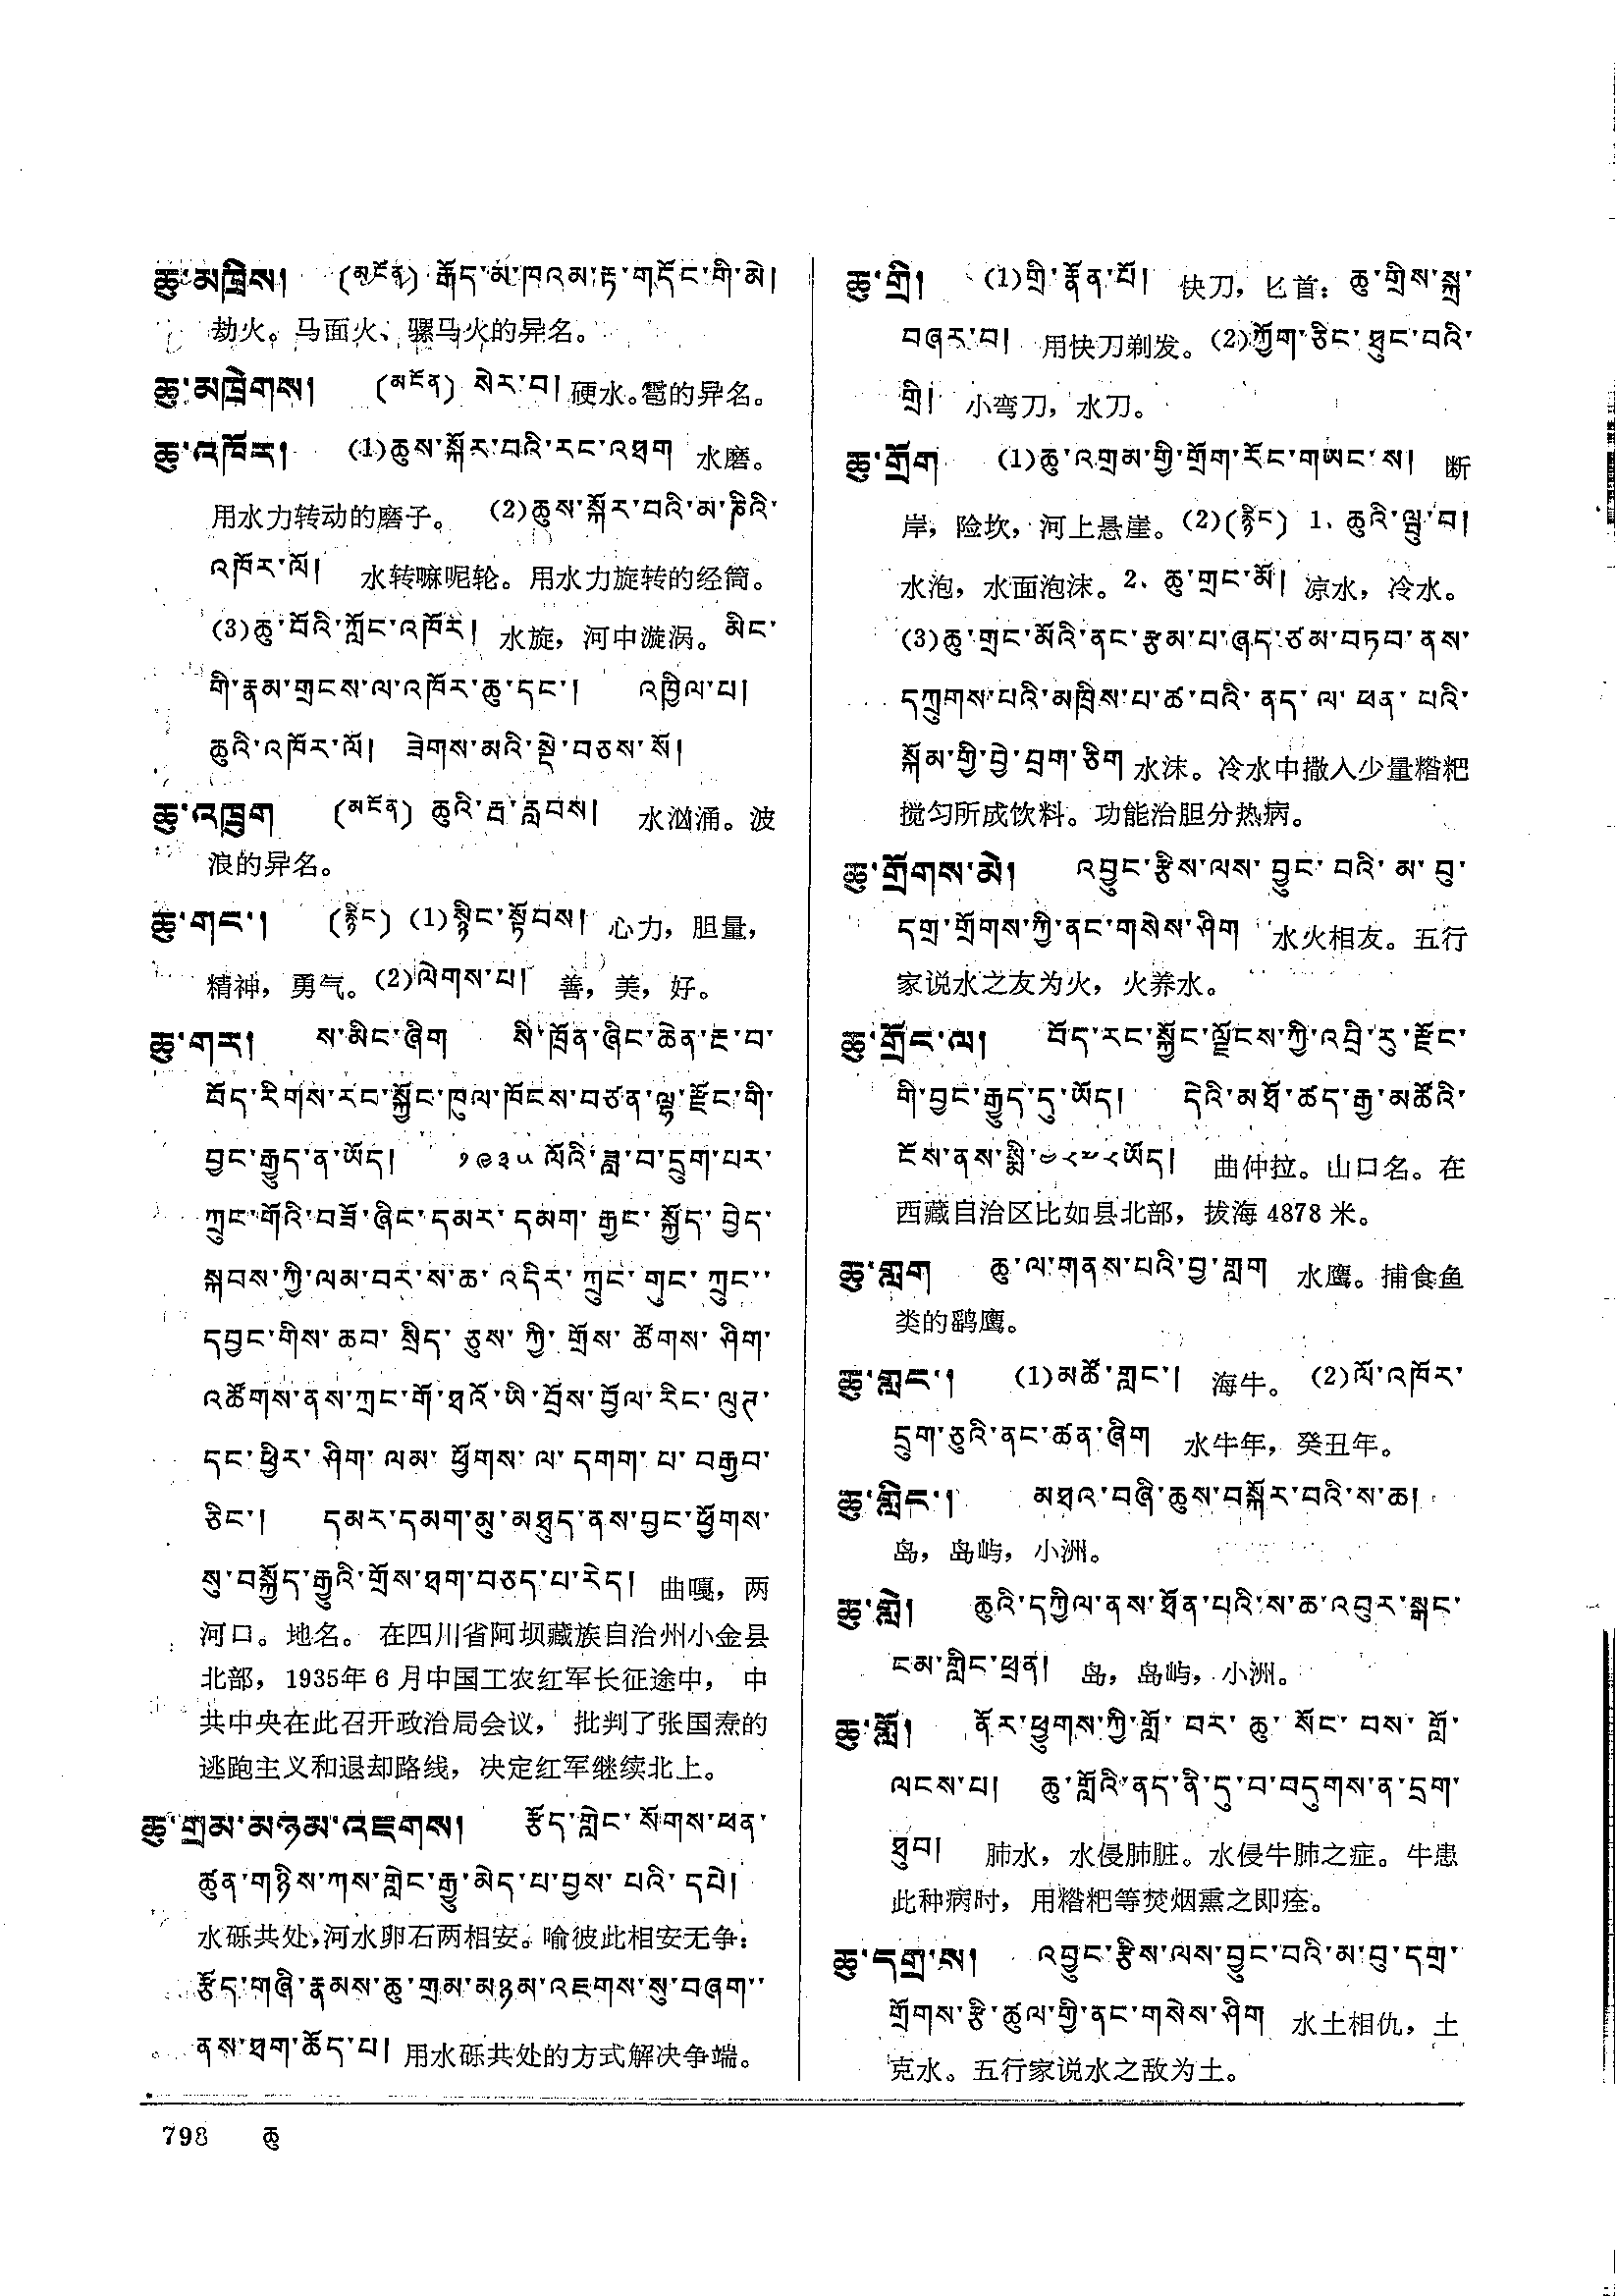 ཆུ་མཁྲིས། (མངོན) རྒོད་མ་ཁའམ་རྟ་གདོང་གི་མེ།
劫火。马面火、骡马火的异名。
ཆུ་མཁྲེགས། (མངོན) སེར་བ། 硬水。雹的异名。
ཆུ་འཁོར། (1)ཆུས་སྐོར་བའི་རང་འཐག 水磨。
用水力转动的磨子。 (2)ཆུས་སྐོར་བའི་མ་ཎིའི་
འཁོར་ལོ། 水转嘛呢轮。用水力旋转的经筒。
(3)ཆུ་བོའི་ཀློང་འཁོར། 水旋，河中漩涡。མིང་
གི་རྣམ་གྲངས་ལ་འཁོར་ཆུ་དང་། འཁྱིལ་པ།
ཆུའི་འཁོར་ལོ། ཟེགས་མའི་སྡེ་བཅས་སོ།
ཆུ་འཁྲུག (མངོན) ཆུའི་རྦ་རླབས། 水汹涌。波
浪的异名。
ཆུ་གང་། (རྙིང) (1)སྙིང་སྟོབས། 心力，胆量，
精神，勇气。(2)ལེགས་པ། 善，美，好。
ཆུ་གར། ས་མིང་ཞིག སི་ཁྲོན་ཞིང་ཆེན་རྔ་བ་
བོད་རིགས་རང་སྐྱོང་ཁུལ་ཁོངས་བཙན་ལྷ་རྫོང་གི་
བྱང་རྒྱུད་ན་ཡོད། ༡༩༣༥ ལོའི་ཟླ་བ་དྲུག་པར་
ཀྲུང་གོའི་བཟོ་ཞིང་དམར་དམག་རྒྱང་སྐྱོད་བྱེད་
སྐབས་ཀྱི་ལམ་བར་ས་ཆ་འདིར་ཀྲུང་གུང་ཀྲུང་་
དབྱང་གིས་ཆབ་སྲིད་ཅུས་ཀྱི་གྲོས་ཚོགས་ཤིག་
འཚོགས་ནས་ཀྲང་གོ་ཐའོ་ཡི་བྲོས་བྱོལ་རིང་ལུཊ་
དང་ཕྱིར་ཤིག་ལམ་ཕྱོགས་ལ་དགག་པ་བརྒྱབ་
ཅིང་། དམར་དམག་མུ་མཐུད་ནས་བྱང་ཕྱོགས་
སུ་བསྐྱོད་རྒྱུའི་གྲོས་ཐག་བཅད་པ་རེད། 曲嘎，两
河口。地名。 在四川省阿坝藏族自治州小金县
北部，1935年 6 月中国工农红军长征途中， 中
共中央在此召开政治局会议， 批判了张国焘的
逃跑主义和退却路线，决定红军继续北上。
ཆུ་གྲམ་མཉམ་འཇགས། རྩོད་གླེང་སོགས་ཕན་
ཚུན་གཉིས་ཀས་གླེང་རྒྱུ་མེད་པ་བྱས་པའི་དཔེ།
水砾共处，河水卵石两相安。喻彼此相安无争：
རྩོད་གཞི་རྣམས་ཆུ་གྲམ་མཉམ་འཇགས་སུ་བཞག་་
ནས་ཐག་ཆོད་པ། 用水砾共处的方式解决争端。
ཆུ་གྲི། (1)གྲི་རྣོན་པོ། 快刀，匕首：ཆུ་གྲིས་སྐྲ་
བཞར་བ། 用快刀剃发。(2)ཀྱོག་ཅིང་ཐུང་བའི་
གྲི། 小弯刀，水刀。
ཆུ་གྲོག (1)ཆུ་འགྲམ་གྱི་གྲོག་རོང་གཡང་ས། 断
岸，险坎，河上悬崖。(2)(རྙིང) 1、ཆུའི་ལྦུ་བ།
水泡，水面泡沫。2、ཆུ་གྲང་མོ། 凉水，冷水。
(3)ཆུ་གྲང་མོའི་ནང་རྩམ་པ་ཞད་ཙམ་བཏབ་ནས་
དཀྲུགས་པའི་མཁྲིས་པ་ཚ་བའི་ནད་ལ་ཕན་པའི་
སྐོམ་གྱི་བྱེ་བྲག་ཅིག 水沫。冷水中撒入少量糌粑
搅匀所成饮料。功能治胆分热病。
ཆུ་གྲོགས་མེ། འབྱུང་རྩིས་ལས་བྱུང་བའི་མ་བུ་
དགྲ་གྲོགས་ཀྱི་ནང་གསེས་ཤིག 水火相友。五行
家说水之友为火，火养水。
ཆུ་གྲོང་ལ། བོད་རང་སྐྱོང་ལྗོངས་ཀྱི་འབྲི་རུ་རྫོང་
གི་བྱང་རྒྱུད་དུ་ཡོད། དེའི་མཐོ་ཚད་རྒྱ་མཚོའི་
ངོས་ནས་སྨི་༤༨༧༨ཡོད། 曲仲拉。山口名。在
西藏自治区比如县北部，拔海 4878 米。
ཆུ་གླག ཆུ་ལ་གནས་པའི་བྱ་གླག 水鹰。捕食鱼
类的鹞鹰。
ཆུ་གླང་། (1)མཚོ་གླང་། 海牛。 (2)ལོ་འཁོར་
དྲུག་ཅུའི་ནང་ཚན་ཞིག 水牛年，癸丑年。
ཆུ་གླིང་། མཐའ་བཞི་ཆུས་བསྐོར་བའི་ས་ཆ།
岛，岛屿，小洲。
ཆུ་གླེ། ཆུའི་དཀྱིལ་ནས་ཐོན་པའི་ས་ཆ་འབུར་སྒང་
ངམ་གླིང་ཕྲན། 岛，岛屿，小洲。
ཆུ་གློ། ནོར་ཕྱུགས་ཀྱི་གློ་བར་ཆུ་སོང་བས་གློ་
ལངས་པ། ཆུ་གློའི་ནད་ནི་དུ་བ་བདུགས་ན་དྲག་
ཐུབ། 肺水，水侵肺脏。水侵牛肺之症。牛患
此种病时，用糌粑等焚烟熏之即痊。
ཆུ་དགྲ་ས། འབྱུང་རྩིས་ལས་བྱུང་བའི་མ་བུ་དགྲ་
གྲོགས་རྩི་ཚུལ་གྱི་ནང་གསེས་ཤིག 水土相仇，土
克水。五行家说水之敌为土。
798 ཆུ